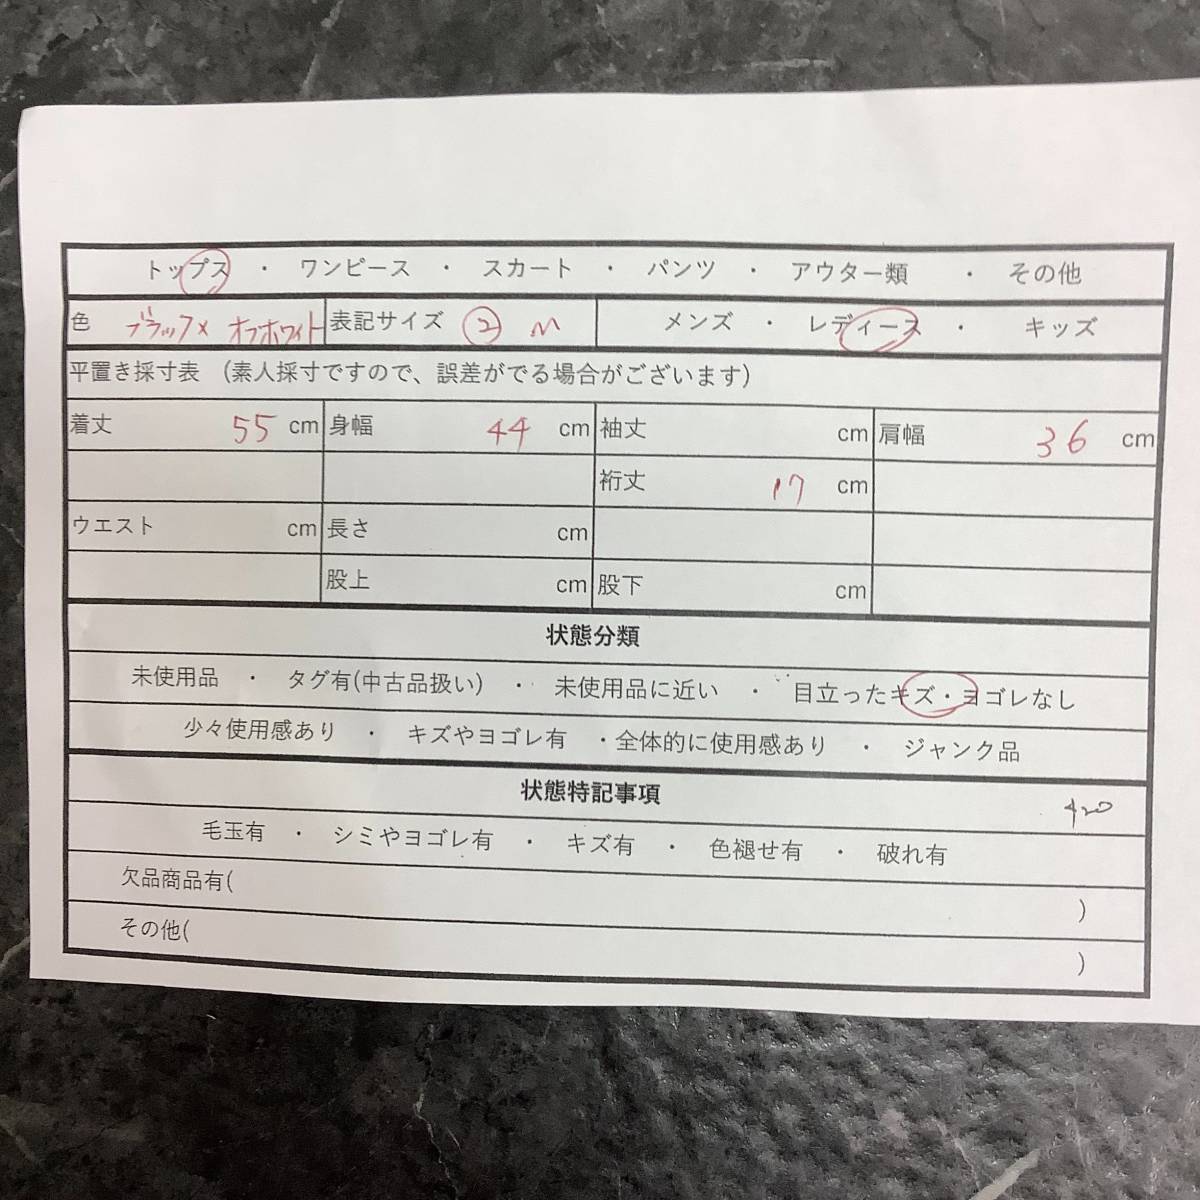 トップス ・ ワンピース ・ スカート ・ パンツ ・ アウター類 ・ その他
色 ブラック× オフホワイト 表記サイズ ② M メンズ ・ レディース ・ キッズ
平置き採寸表 (素人採寸ですので、誤差がでる場合がございます)
着丈 55 cm 身幅 44 cm 袖丈 cm 肩幅 36 cm
裄丈 17 cm
ウエスト cm 長さ cm
股上 cm 股下 cm
状態分類
未使用品 ・ タグ有(中古品扱い) ・ 未使用品に近い ・ 目立ったキズ・ヨゴレなし
少々使用感あり ・ キズやヨゴレ有 ・全体的に使用感あり ・ ジャンク品
状態特記事項 420
毛玉有 ・ シミやヨゴレ有 ・ キズ有 ・ 色褪せ有 ・ 破れ有
欠品商品有( )
その他( )